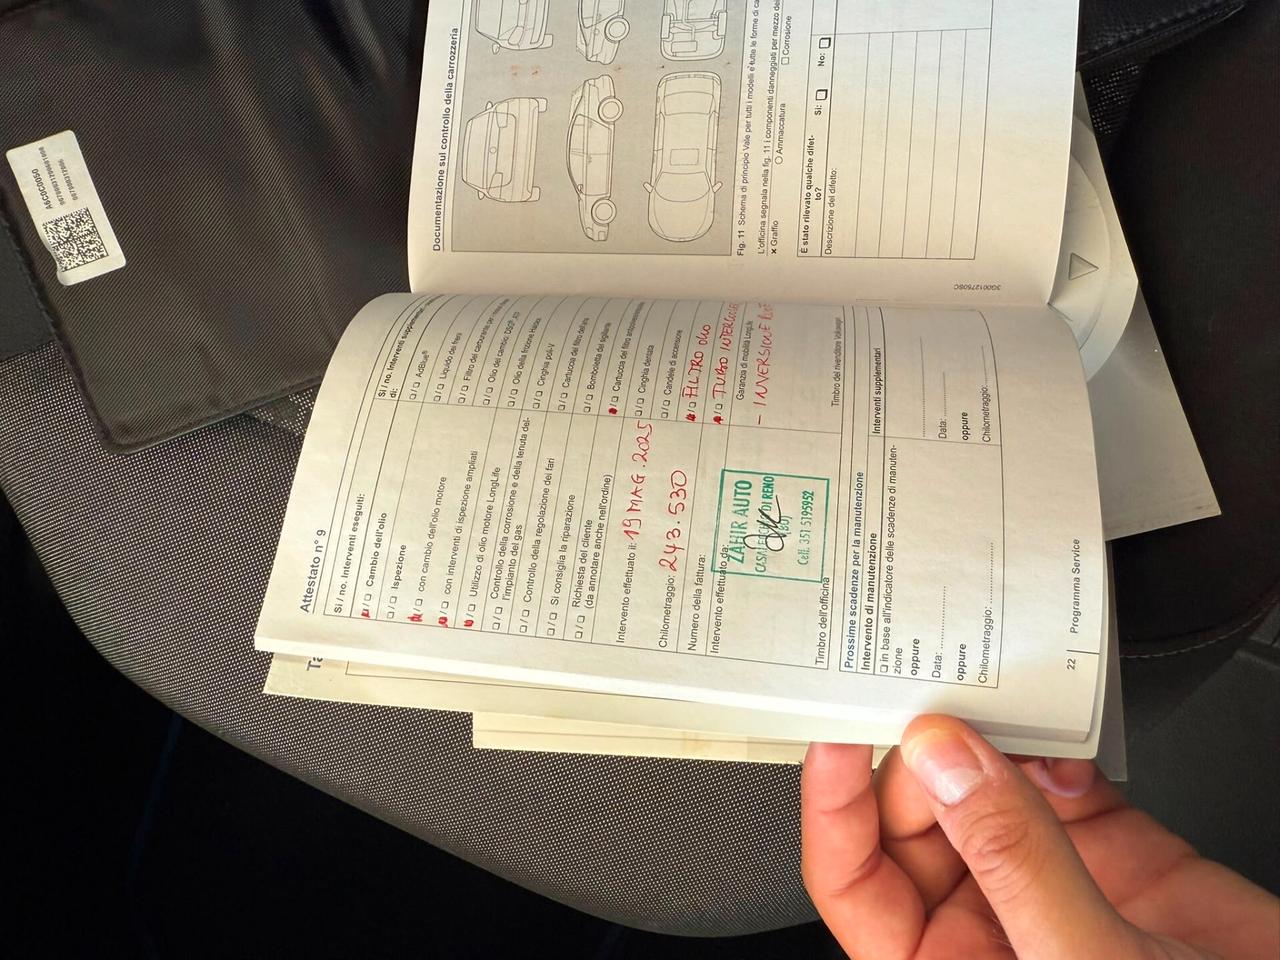 A6C0C0050
Documentazione sul controllo della carrozzeria
Fig. 11 Schema di principio Vale per tutti i modelli e tutte le forme di
L'officina segnala nella fig. 11 i componenti danneggiati per mezzo
× Graffio
○ Ammaccatura
□ Corrosione
È stato rilevato qualche difet-
to?
Sì: □
No: □
Descrizione del difetto:
3G0012750SC
Attestato n° 9
Sì / no. Interventi eseguiti:
□/□ Cambio dell'olio
□/□ Ispezione
□/□ con cambio dell'olio motore
□/□ con interventi di ispezione ampliati
□/□ Utilizzo di olio motore LongLife
□/□ Controllo della corrosione e della tenuta del-
l'impianto del gas
□/□ Controllo della regolazione dei fari
□/□ Si consiglia la riparazione
□/□ Richiesta del cliente
(da annotare anche nell'ordine)
Intervento effettuato il: 19 MAG. 2025
Chilometraggio: 243.530
Numero della fattura:
Intervento effettuato da:
ZAHIR AUTO
DI RENO
(BO)
Cell. 351 5195952
Timbro dell'officina
Sì / no. Interventi supplementari
di:
□/□ AdBlue®
□/□ Liquido dei freni
□/□ Filtro del carburante
□/□ Olio del cambio DSG®
□/□ Olio della frizione Haldex
□/□ Cinghia poli-V
□/□ Cartuccia del filtro dell'aria
□/□ Bomboletta del sigillante
□/□ Cartuccia del filtro antipolline
□/□ Cinghia dentata
□/□ Candele di accensione
□/□ FILTRO OLIO
□/□ TURBO INTERCOOLER
Garanzia di mobilità LongLife
- INVERSIONE
Timbro del rivenditore Volkswagen
Prossime scadenze per la manutenzione
Intervento di manutenzione
□ in base all'indicatore delle scadenze di manuten-
zione
oppure
Data:
oppure
Chilometraggio:
Interventi supplementari
Data:
oppure
Chilometraggio:
22
Programma Service